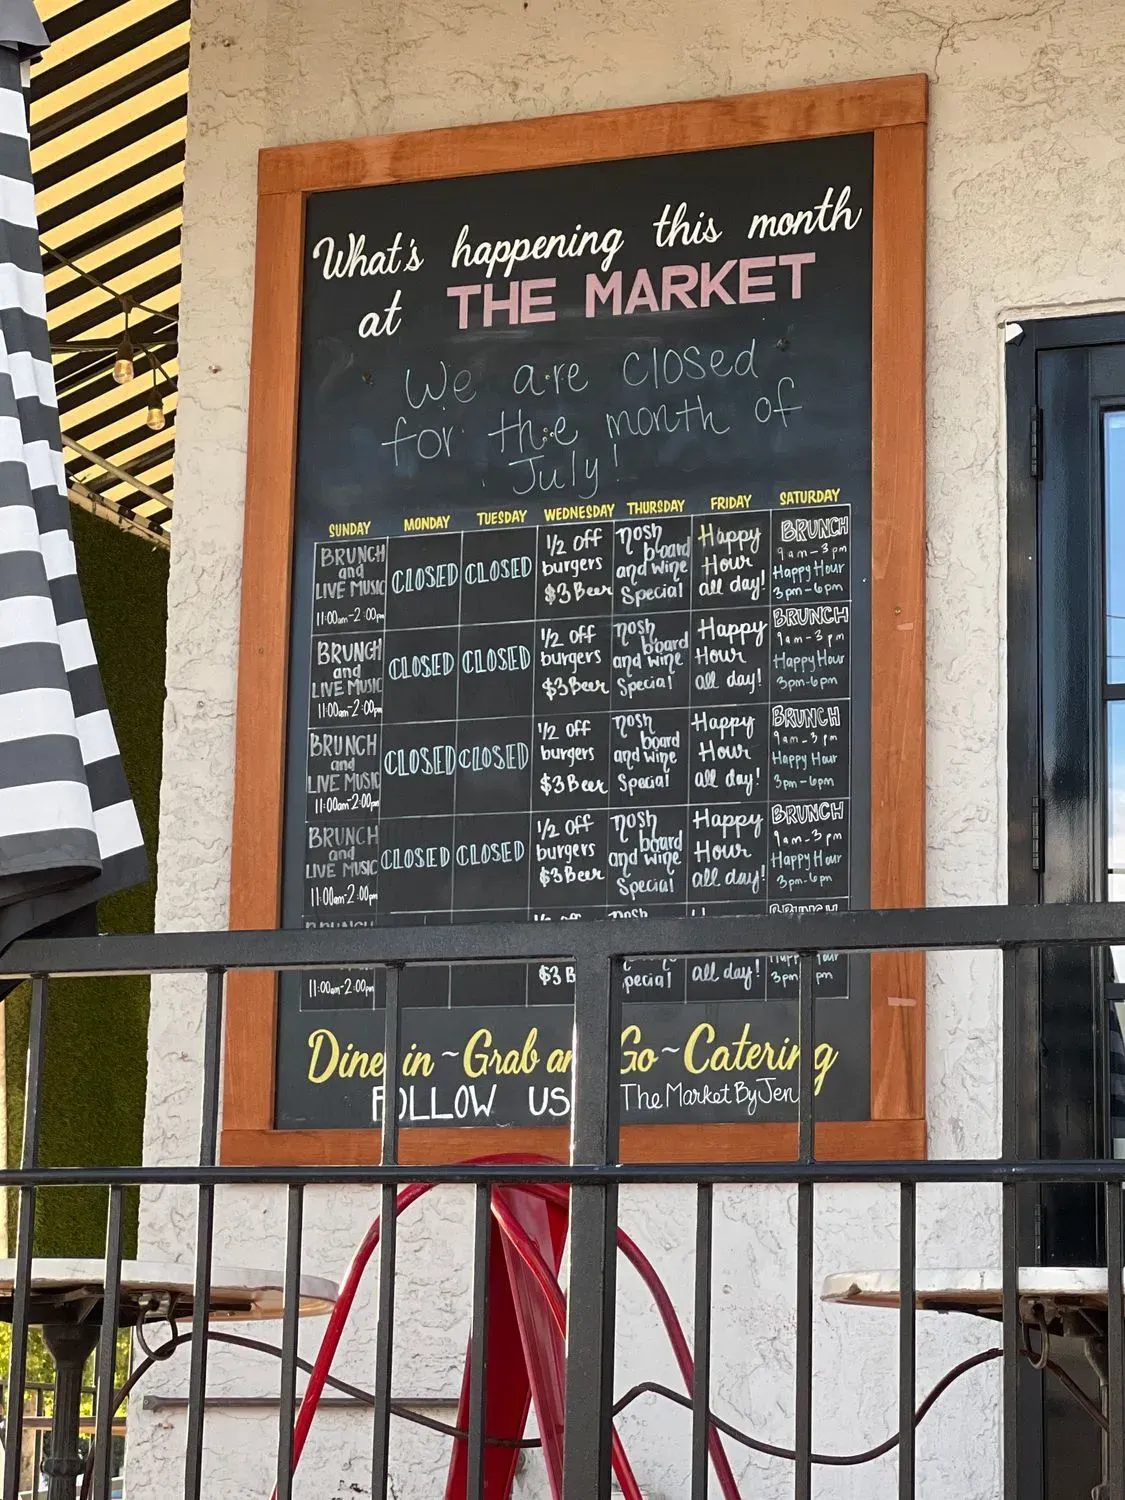 What's happening this month
at THE MARKET
We are closed
for the month of
July!
SUNDAY MONDAY TUESDAY WEDNESDAY THURSDAY FRIDAY SATURDAY
BRUNCH
and
LIVE MUSIC
11:00am-2:00pm
CLOSED
CLOSED
1/2 off
burgers
$3 Beer
nosh
board
and wine
Special
Happy
Hour
all day!
BRUNCH
9am-3pm
Happy Hour
3pm-6pm
BRUNCH
and
LIVE MUSIC
11:00am-2:00pm
CLOSED
CLOSED
1/2 off
burgers
$3 Beer
nosh
board
and wine
Special
Happy
Hour
all day!
BRUNCH
9am-3pm
Happy Hour
3pm-6pm
BRUNCH
and
LIVE MUSIC
11:00am-2:00pm
CLOSED
CLOSED
1/2 off
burgers
$3 Beer
nosh
board
and wine
Special
Happy
Hour
all day!
BRUNCH
9am-3pm
Happy Hour
3pm-6pm
BRUNCH
and
LIVE MUSIC
11:00am-2:00pm
CLOSED
CLOSED
1/2 off
burgers
$3 Beer
nosh
board
and wine
Special
Happy
Hour
all day!
BRUNCH
9am-3pm
Happy Hour
3pm-6pm
BRUNCH
11:00am-2:00pm
1/2 off
$3 B
nosh
Special
all day!
BRUNCH
Happy Hour
3pm pm
Dine in ~ Grab an Go ~ Catering
FOLLOW US TheMarketByJen